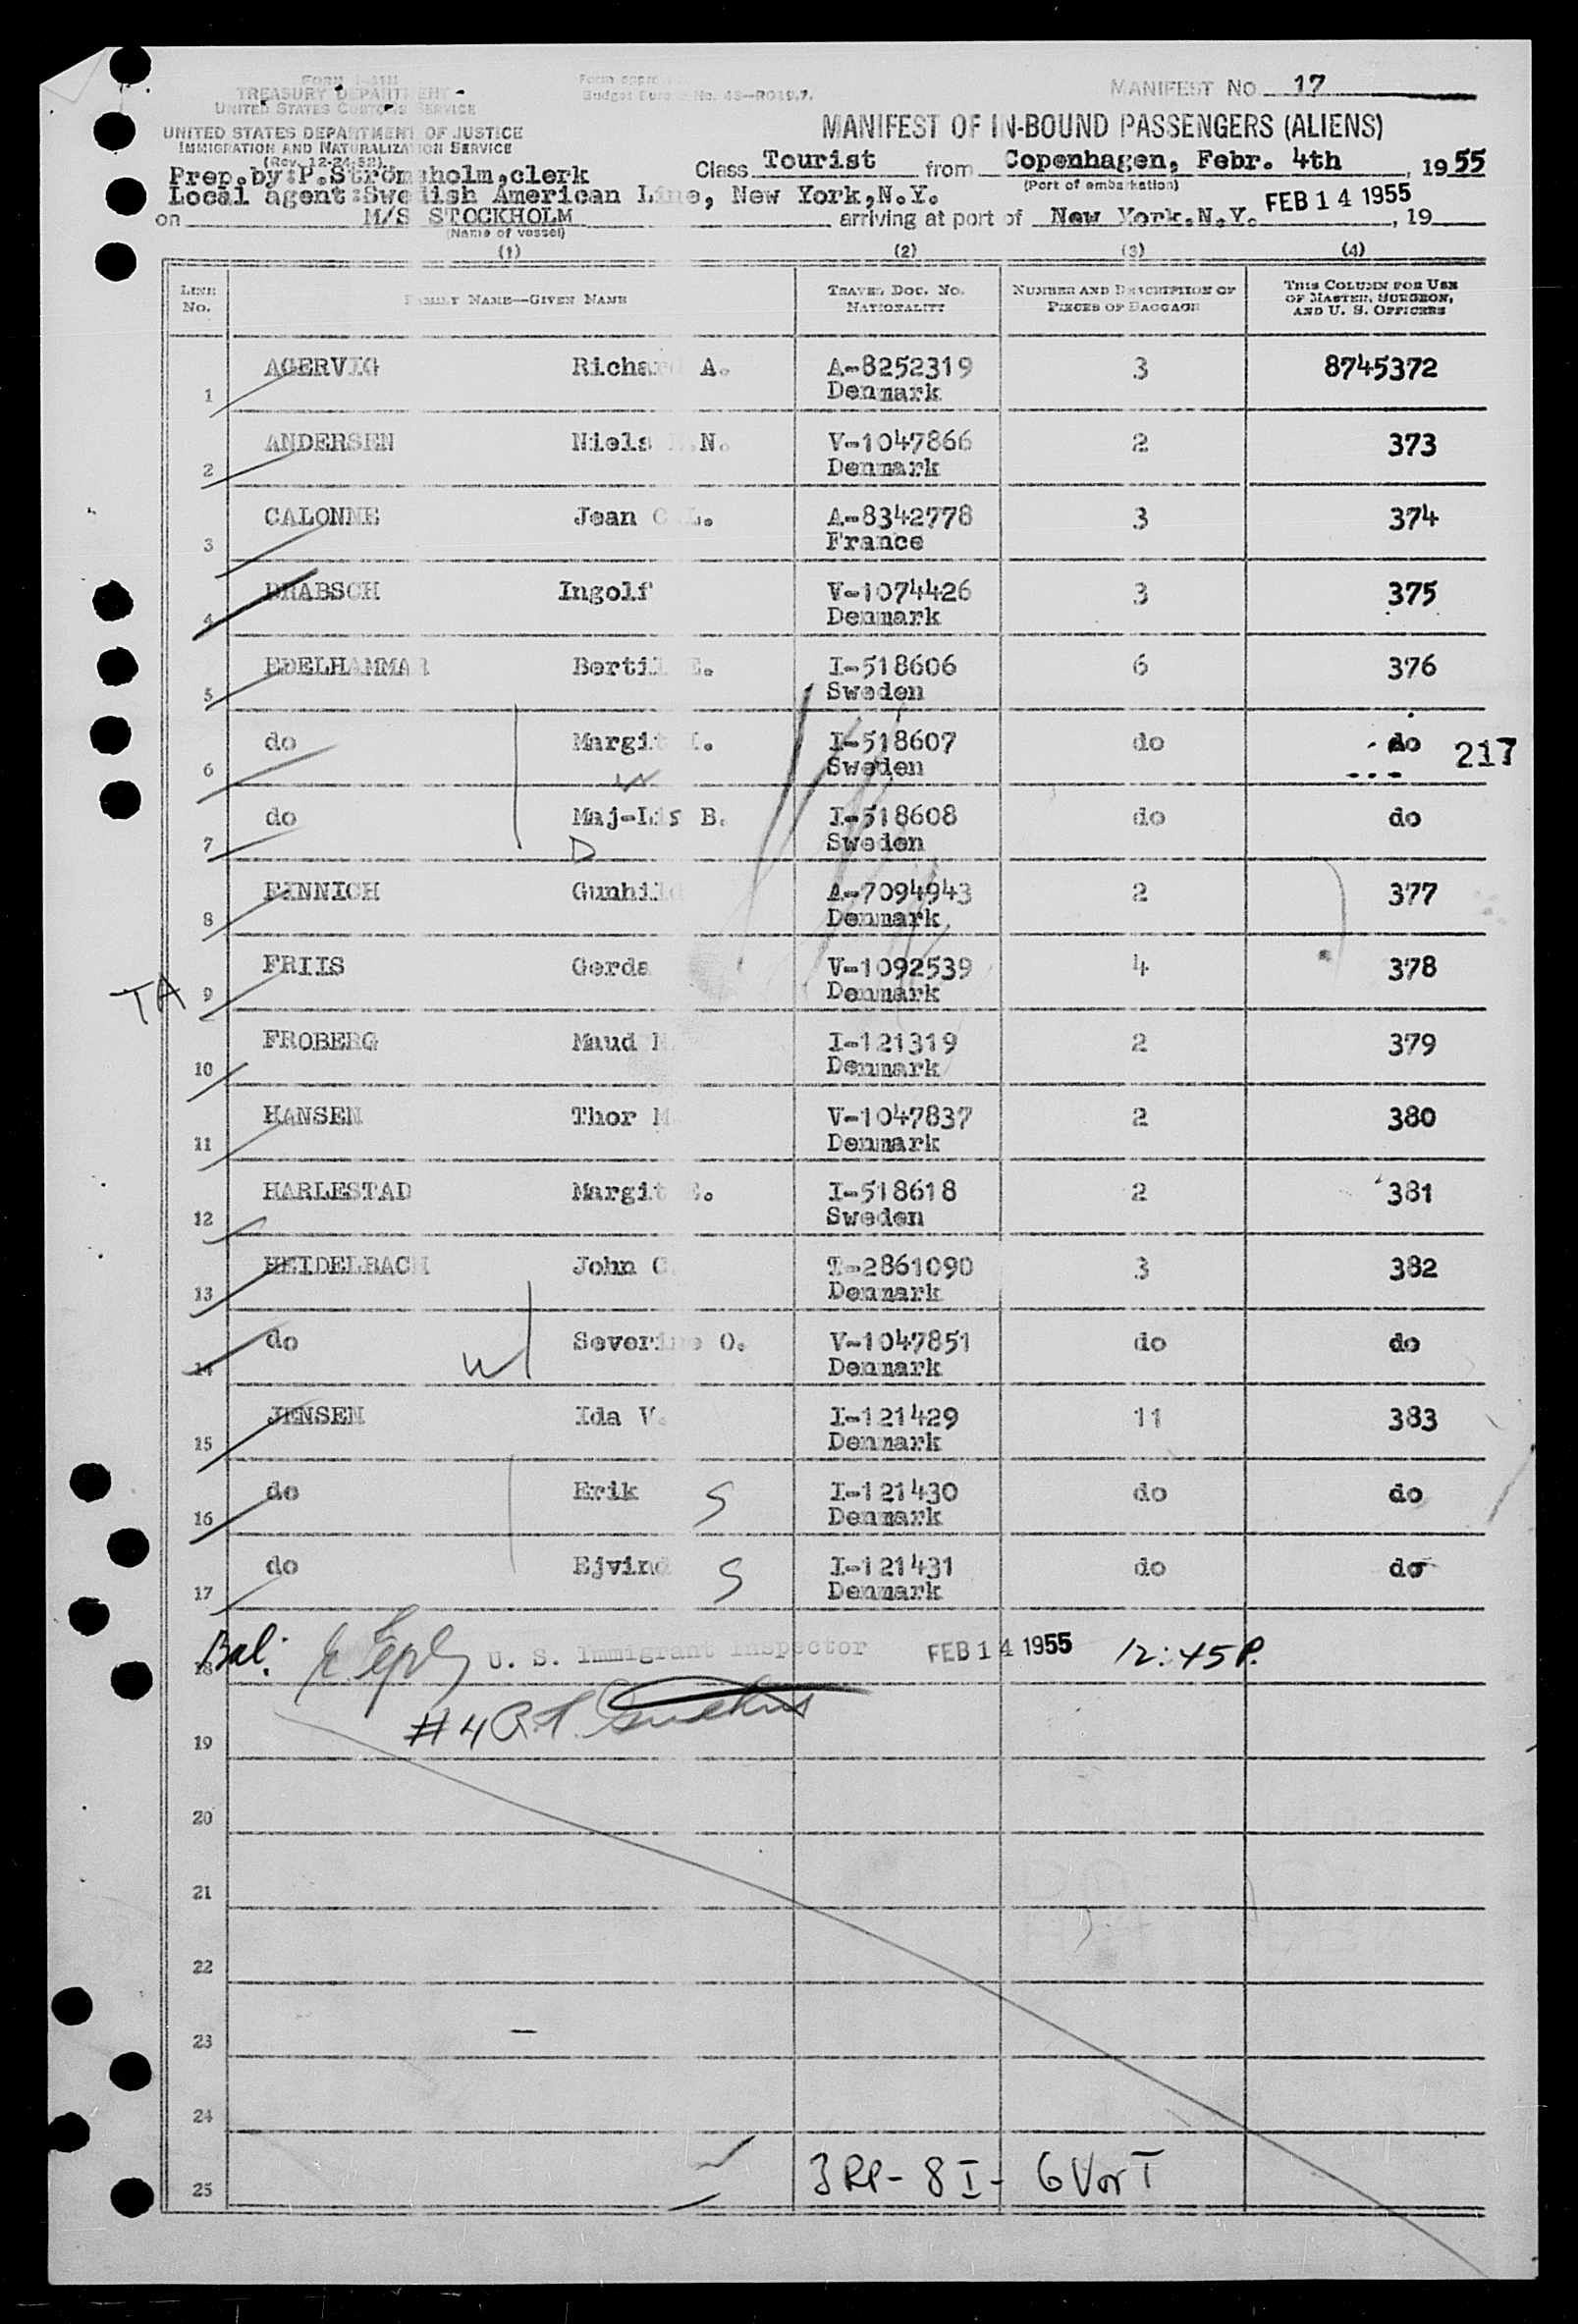 FORM I-418
TREASURY DEPARTMENT
UNITED STATES CUSTOMS SERVICE
UNITED STATES DEPARTMENT OF JUSTICE
IMMIGRATION AND NATURALIZATION SERVICE
(Rev. 12-24-52)
Form appr
Budget Bureau No. 43—R019.7.
MANIFEST No. 17
MANIFEST OF IN-BOUND PASSENGERS (ALIENS)
Prep.by:P.Strömsholm,clerk
Class Tourist from Copenhagen, Febr. 4th, 1955
(Port of embarkation)
Local agent:Swedish American Line, New York,N.Y.
on M/S STOCKHOLM arriving at port of New York,N.Y. FEB 14 1955, 19
(Name of vessel)
(1) (2) (3) (4)
LINE No. FAMILY NAME—GIVEN NAME TRAVEL DOC. NO. NATIONALITY NUMBER AND DESCRIPTION OF PIECES OF BAGGAGE THIS COLUMN FOR USE OF MASTER, SURGEON, AND U. S. OFFICERS
1 AGERVIG Richard A. A-8252319 3 8745372
Denmark
2 ANDERSEN Niels N. V-1047866 2 373
Denmark
3 CALONNE Jean C.L. A-8342778 3 374
France
4 DRABSCH Ingolf V-1074426 3 375
Denmark
5 EDELHAMMAR Bertil E. I-518606 6 376
Sweden
6 do Margit I-518607 do do 217
W Sweden
7 do Maj-Lis B. I-518608 do do
D Sweden
8 FINNICH Gunhild A-7094943 2 377
Denmark
TA 9 FRIIS Gerda V-1092539 4 378
Denmark
10 FROBERG Maud N. I-121319 2 379
Denmark
11 HANSEN Thor M. V-1047837 2 380
Denmark
12 HARLESTAD Margit E. I-518618 2 381
Sweden
13 HEIDELBACH John C. T-2861090 3 382
Denmark
14 do W Severine O. V-1047851 do do
Denmark
15 JENSEN Ida V. I-121429 11 383
Denmark
16 do Erik S I-121430 do do
Denmark
17 do Ejvind S I-121431 do do
Denmark
18 Bal: U. S. Immigrant Inspector FEB 14 1955 12:45 P.
#4
19
20
21
22
23
24
25 3 RP - 8 I - 6 V or T